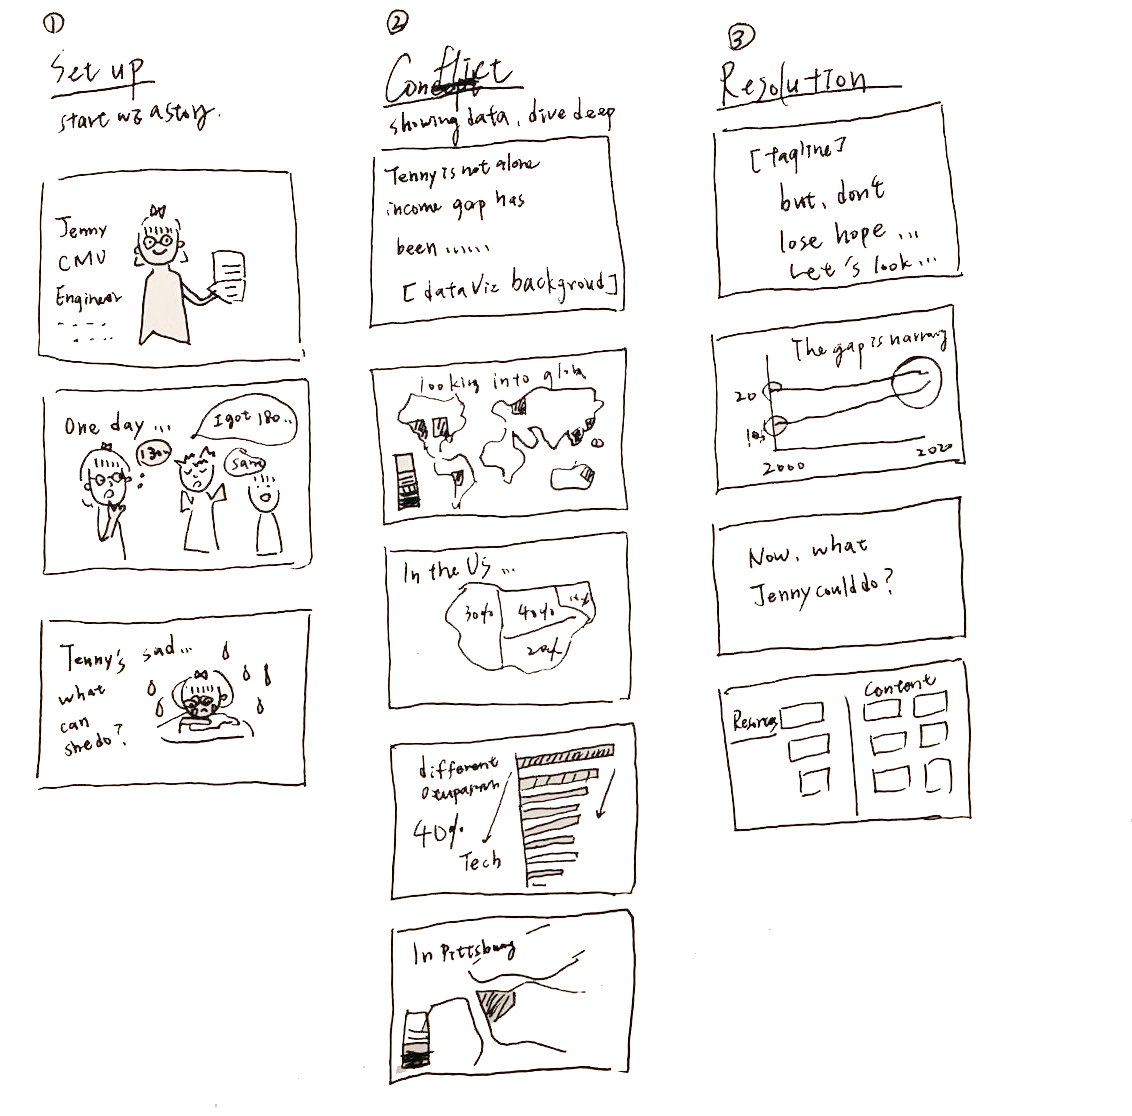 ①
Set up
start w/ a story.
Jenny
CMU
Engineer
One day ...
130..
I got 180..
same
Jenny's sad...
what
can
she do?
②
Conflict
showing data, dive deep
Jenny is not alone
income gap has
been ......
[data viz backgroud]
looking into glob
In the US ...
30%
40%
20%
different
40%
Tech
In Pittsburg
③
Resolution
[tagline]
but, don't
lose hope ...
Let's look...
The gap is
20
10
2000
2020
Now, what
Jenny could do?
Content